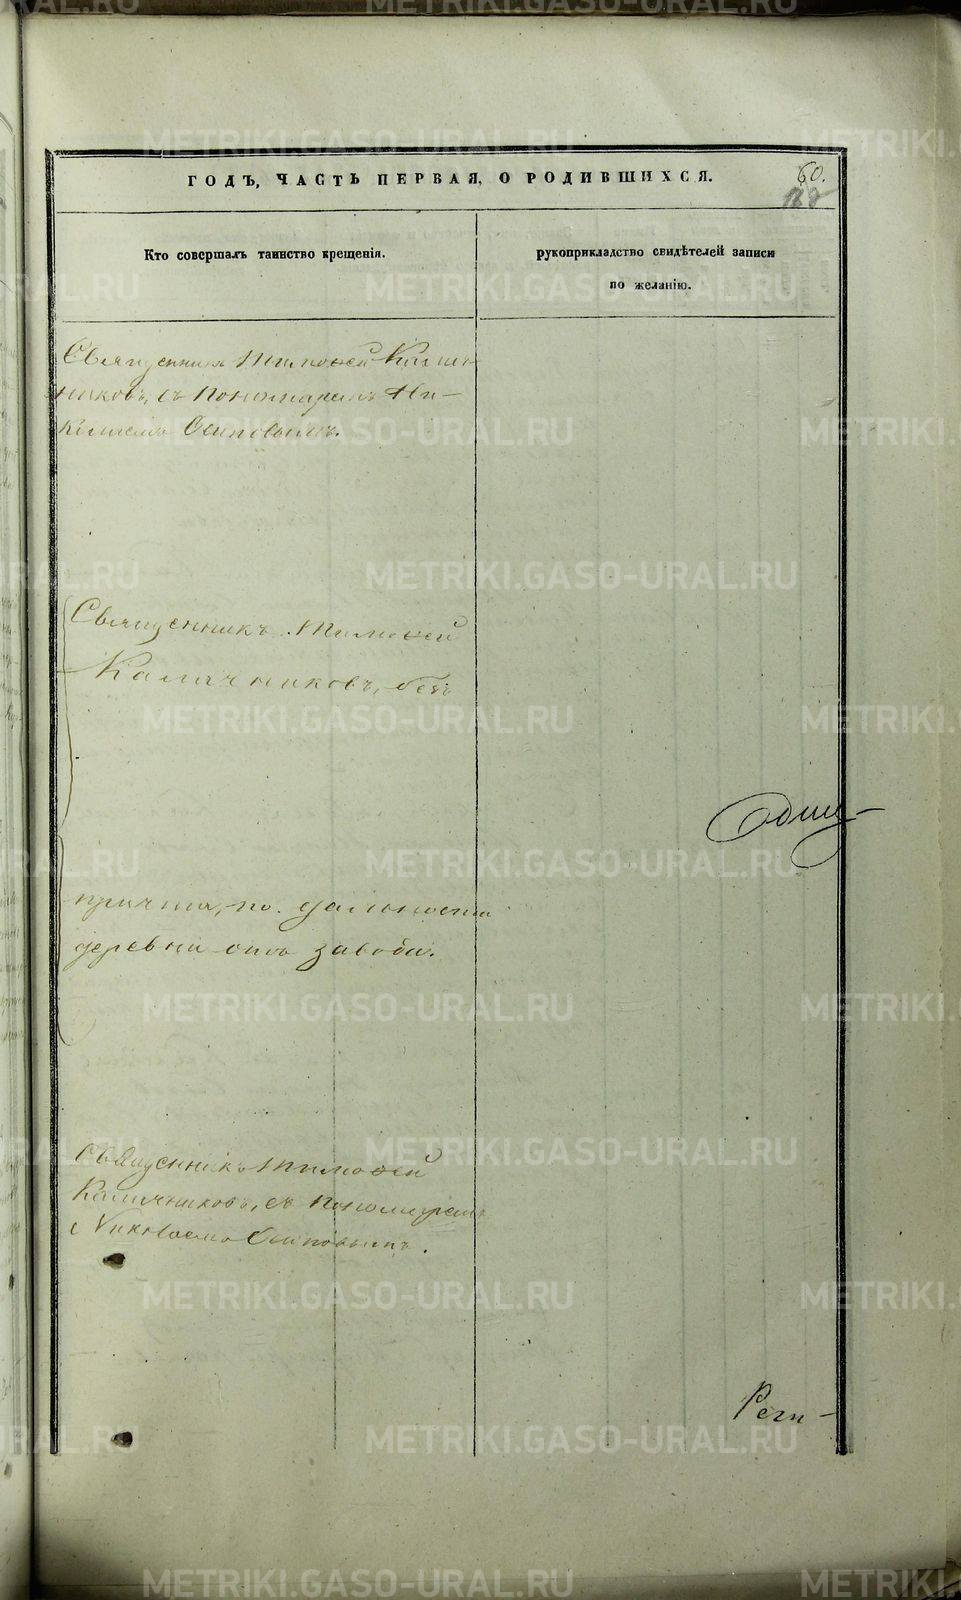 ГОДЪ, ЧАСТЬ ПЕРВАЯ, О РОДИВШИХСЯ.
60.
Кто совершалъ таинство крещенія.
рукоприкладство свидѣтелей записи
по желанію.
Священникъ Тимоѳей Калаш-
никовъ, съ Пономаремъ Ни-
колаемъ Осиповымъ.
Священникъ Тимоѳей
Калачниковъ, безъ
причта, по дальности
деревни отъ завода.
Священникъ Тимоѳей
Калачниковъ, съ Пономаремъ
Николаемъ Осиповымъ.
Реги-
METRIKI.GASO-URAL.RU